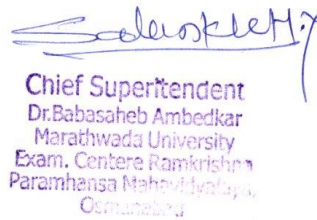 Chief Superitendent
Dr.Babasaheb Ambedkar
Marathwada University
Exam. Centere Ramkrishna
Paramhansa Mahavidyalaya,
Osmanabad